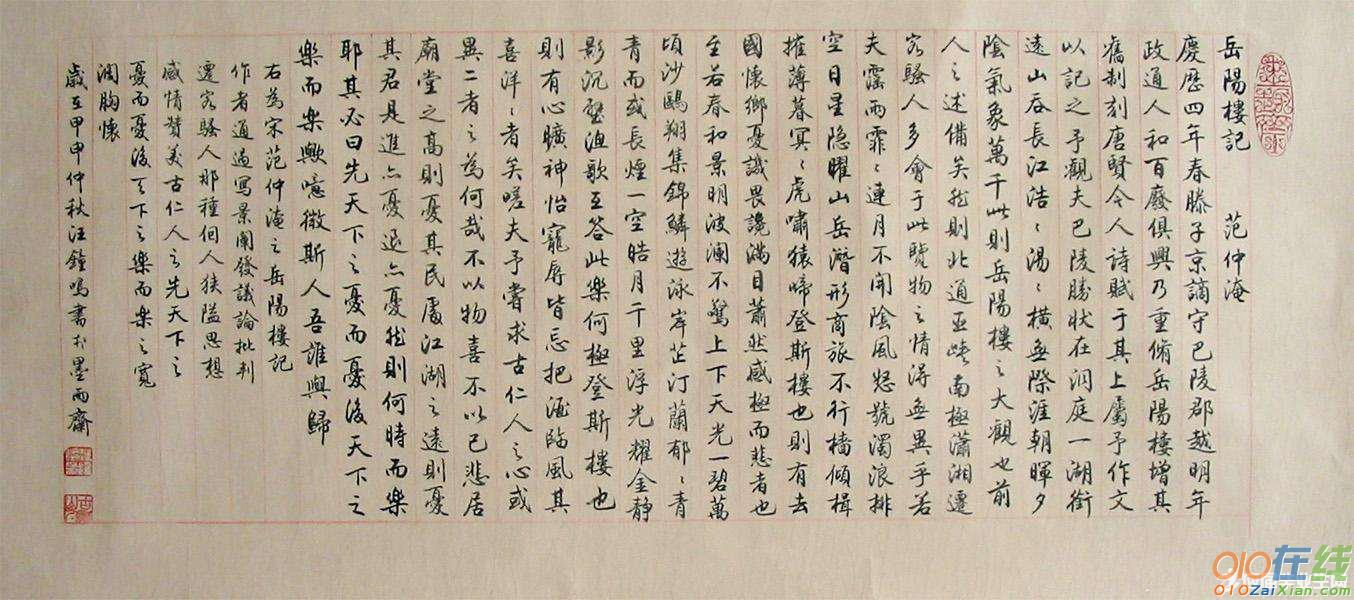 岳陽樓記 范仲淹
慶歷四年春滕子京謫守巴陵郡越明年
政通人和百廢俱興乃重脩岳陽樓增其
舊制刻唐賢今人詩賦于其上屬予作文
以記之予觀夫巴陵勝狀在洞庭一湖銜
遠山吞長江浩〻湯〻橫無際涯朝暉夕
陰氣象萬千此則岳陽樓之大觀也前
人之述備矣然則北通巫峽南極瀟湘遷
客騷人多會于此覽物之情得無異乎若
夫霪雨霏〻連月不開陰風怒號濁浪排
空日星隐曜山岳潛形商旅不行檣傾楫
摧薄暮冥〻虎嘯猿啼登斯樓也則有去
國懷鄉憂譏畏讒滿目蕭然感極而悲者也
至若春和景明波瀾不驚上下天光一碧萬
頃沙鷗翔集錦鱗遊泳岸芷汀蘭郁〻青
青而或長煙一空皓月千里浮光耀金靜
影沉璧漁歌互答此樂何極登斯樓也
則有心曠神怡寵辱皆忘把酒臨風其
喜洋〻者矣嗟夫予嘗求古仁人之心或
異二者之為何哉不以物喜不以己悲居
廟堂之高則憂其民處江湖之遠則憂
其君是進亦憂退亦憂然則何時而樂
耶其必曰先天下之憂而憂後天下之
樂而樂歟噫微斯人吾誰與歸
右為宋范仲淹之岳陽樓記
作者通過寫景闡發議論批判
遷客騷人那種個人狹隘思想
感情贊美古仁人之先天下之
憂而憂後天下之樂而樂之寬
闊胸懷
歲在甲申仲秋汪鐘鳴書於墨雨齋
010在线
010ZaiXian.com